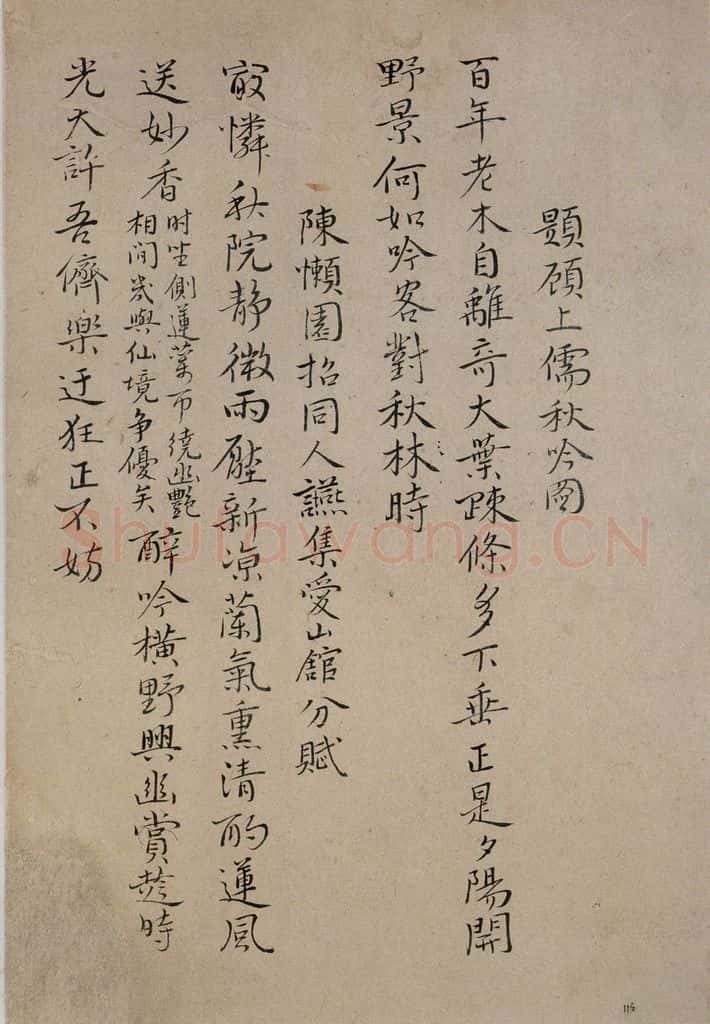 題顧上儒秋吟圖
百年老木自離奇大葉踈條多下垂正是夕陽開
野景何如吟客對秋林時
陳懶園招同人讌集愛山館分賦
㝡憐秋院静微雨酿新凉蘭氣熏清酌蓮風
送妙香时坐側蓮葉帀繞幽艷
相间幾與仙境争優矣醉吟橫野興幽賞趁時
光大許吾儕樂迂狂正不妨
Shufawang.CN
115